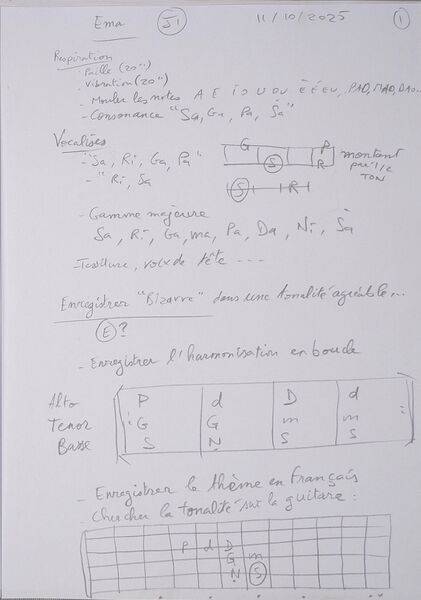 Ema J1 11/10/2025 1
Respiration
- Paille (20")
- Vibration (20")
- Mouler les notes A E I O U OU É È EU, PAO, MAO, DAO...
- Consonance "Sa, Ga, Pa, Ṡa"
Vocalises
- "Sa, Ri, Ga, Pa"
G P
S R
montant par 1/2 TON
- "Ri, Sa
S R
- Gamme majeure
Sa, Ri, Ga, ma, Pa, Da, Ni, Ṡa
- Tessiture, voix de tête ...
Enregistrer "Bizarre" dans une tonalité agréable...
E ?
- Enregistrer l'harmonisation en boucle
Alto P d D d
Tenor G G m m
Basse S N S S
- Enregistrer le thème en Français
- Chercher la tonalité sur la guitare :
P d D
G m
N S